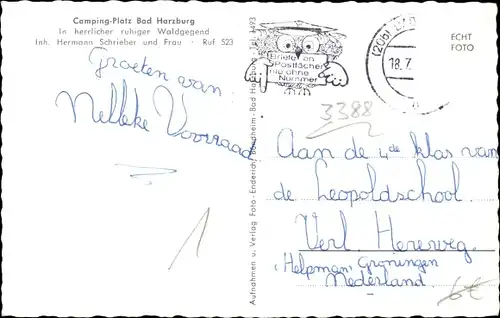 Camping-Platz Bad Harzburg
In herrlicher ruhiger Waldgegend
Inh. Hermann Schrieber und Frau · Ruf 523
Groeten van
Nelleke Voorraad
Aufnahmen u. Verlag Foto-Enderich, Bündheim-Bad Harzburg
Briefe an
Postfächer
nie ohne
Nummer
(20b) BAD
18.7.
ECHT
FOTO
3388
Aan de 4de klas van
de Leopoldschool.
Verl Hereweg.
Helpman, Groningen
Nederland
1
6€